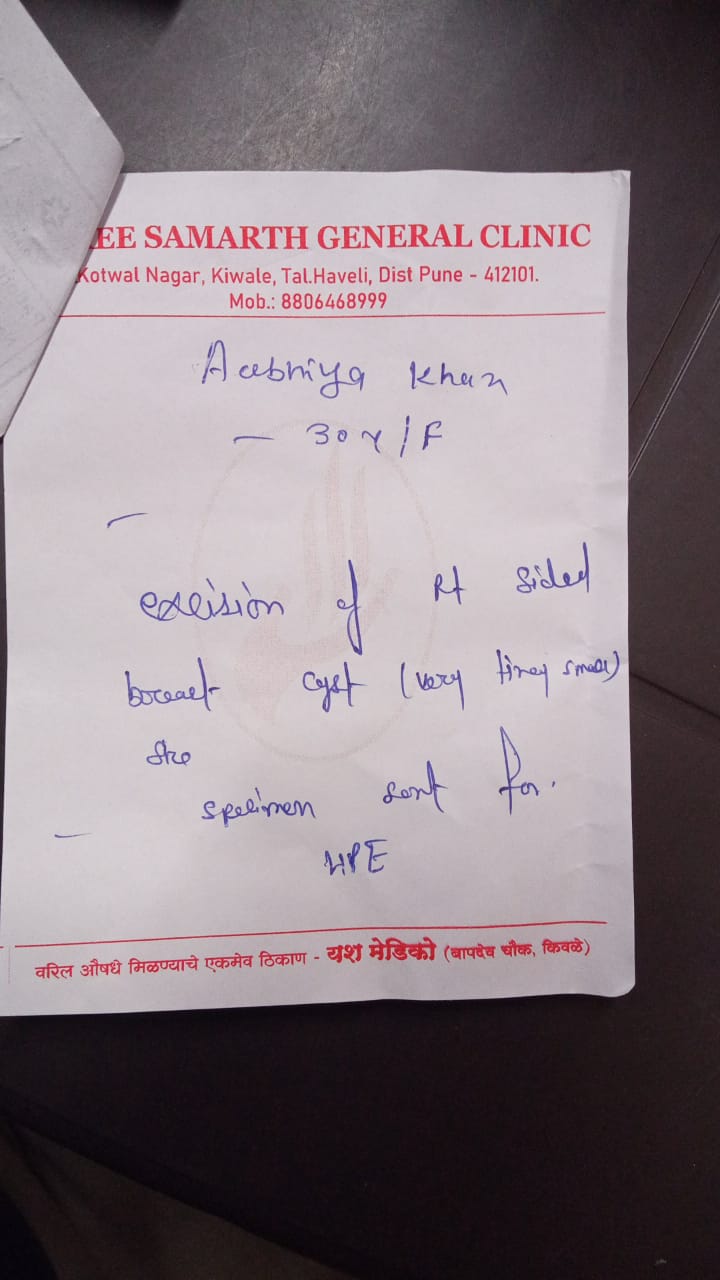 EE SAMARTH GENERAL CLINIC
Kotwal Nagar, Kiwale, Tal.Haveli, Dist Pune - 412101.
Mob.: 8806468999
Khan
- 30 Y/F
excision of Rt sided
breast cyst (very tiney small)
specimen sent for.
HPE
वरिल औषधे मिळण्याचे एकमेव ठिकाण - यश मेडिको (बापदेव चौक, किवळे)